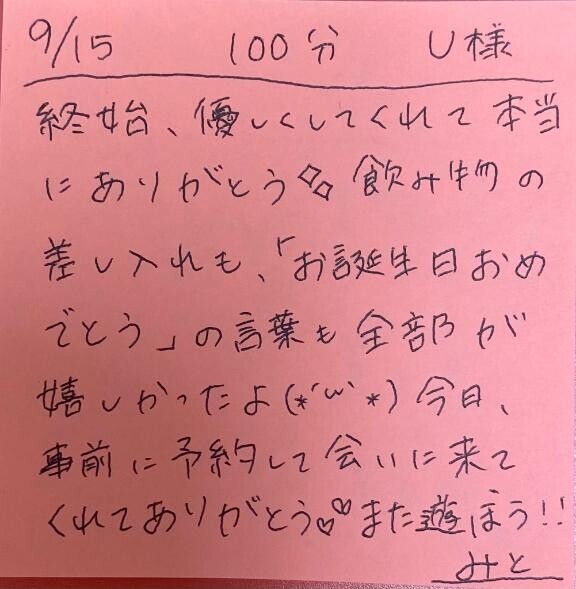 9/15 100分 U様
終始、優しくしてくれて本当
にありがとう✧✧ 飲み物の
差し入れも、「お誕生日おめ
でとう」の言葉も全部が
嬉しかったよ(*´ω`*)今日、
事前に予約して会いに来て
くれてありがとう♡♡また遊ぼう!!
みと